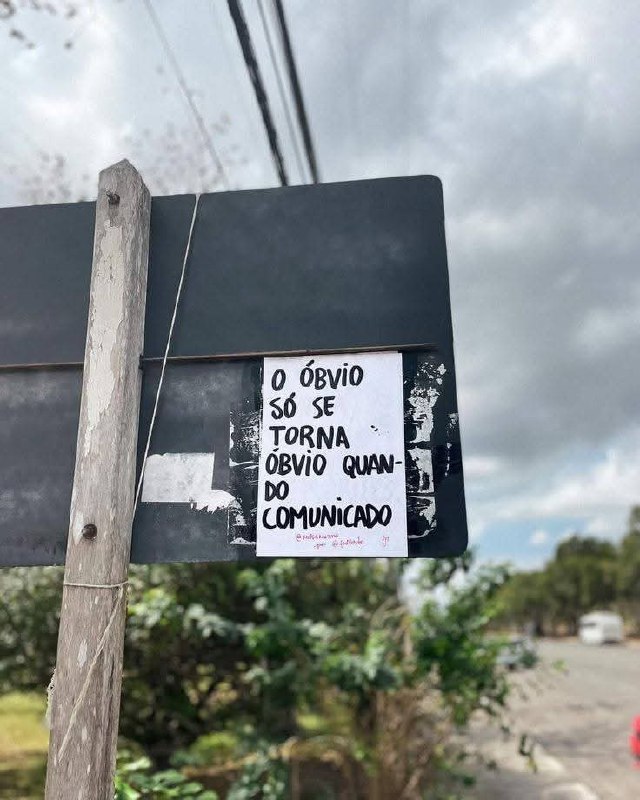 O ÓBVIO
SÓ SE
TORNA
ÓBVIO QUAN-
DO
COMUNICADO